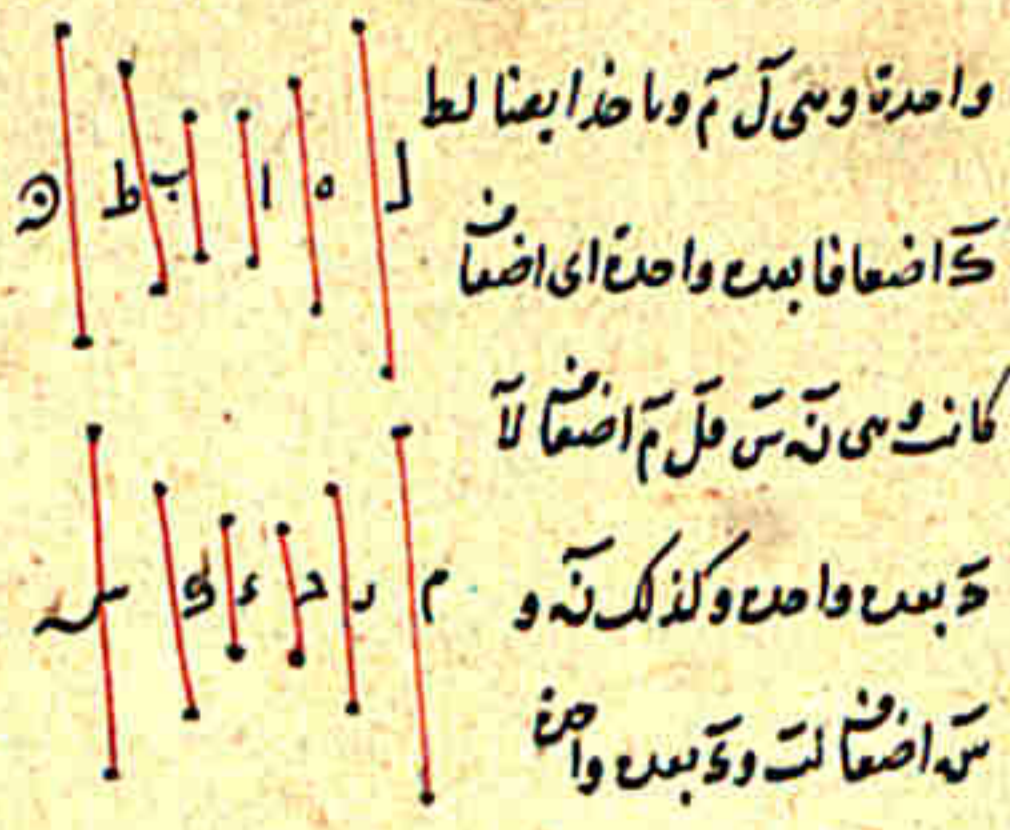 واحدة وهي ل م وناخذ ايضا لط
ك اضعافا بعدة واحدة اى اضعاف
كانت وهي ن س فل م اضعاف لا
ج بعدة واحدة وكذلك ن و
س اضعاف لب و د بعدة واحدة
ل ه ا ب ط ن
م ر ح د ك س